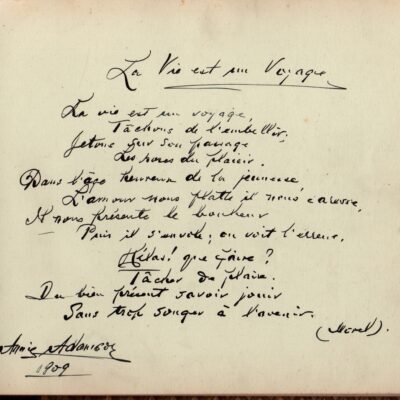 La Vie est un Voyage
La vie est un voyage,
Tâchons de l'embellir,
Jetons sur son passage
Les roses du plaisir.
Dans l'âge heureux de la jeunesse
L'amour nous flatte il nous caresse,
Il nous présente le bonheur
Puis il s'envole, on voit l'erreur.
Hélas! que faire?
Tâcher de plaire.
Du bien présent savoir jouir
Sans trop songer à l'avenir.
(Morel).
Annie Adamson
1909